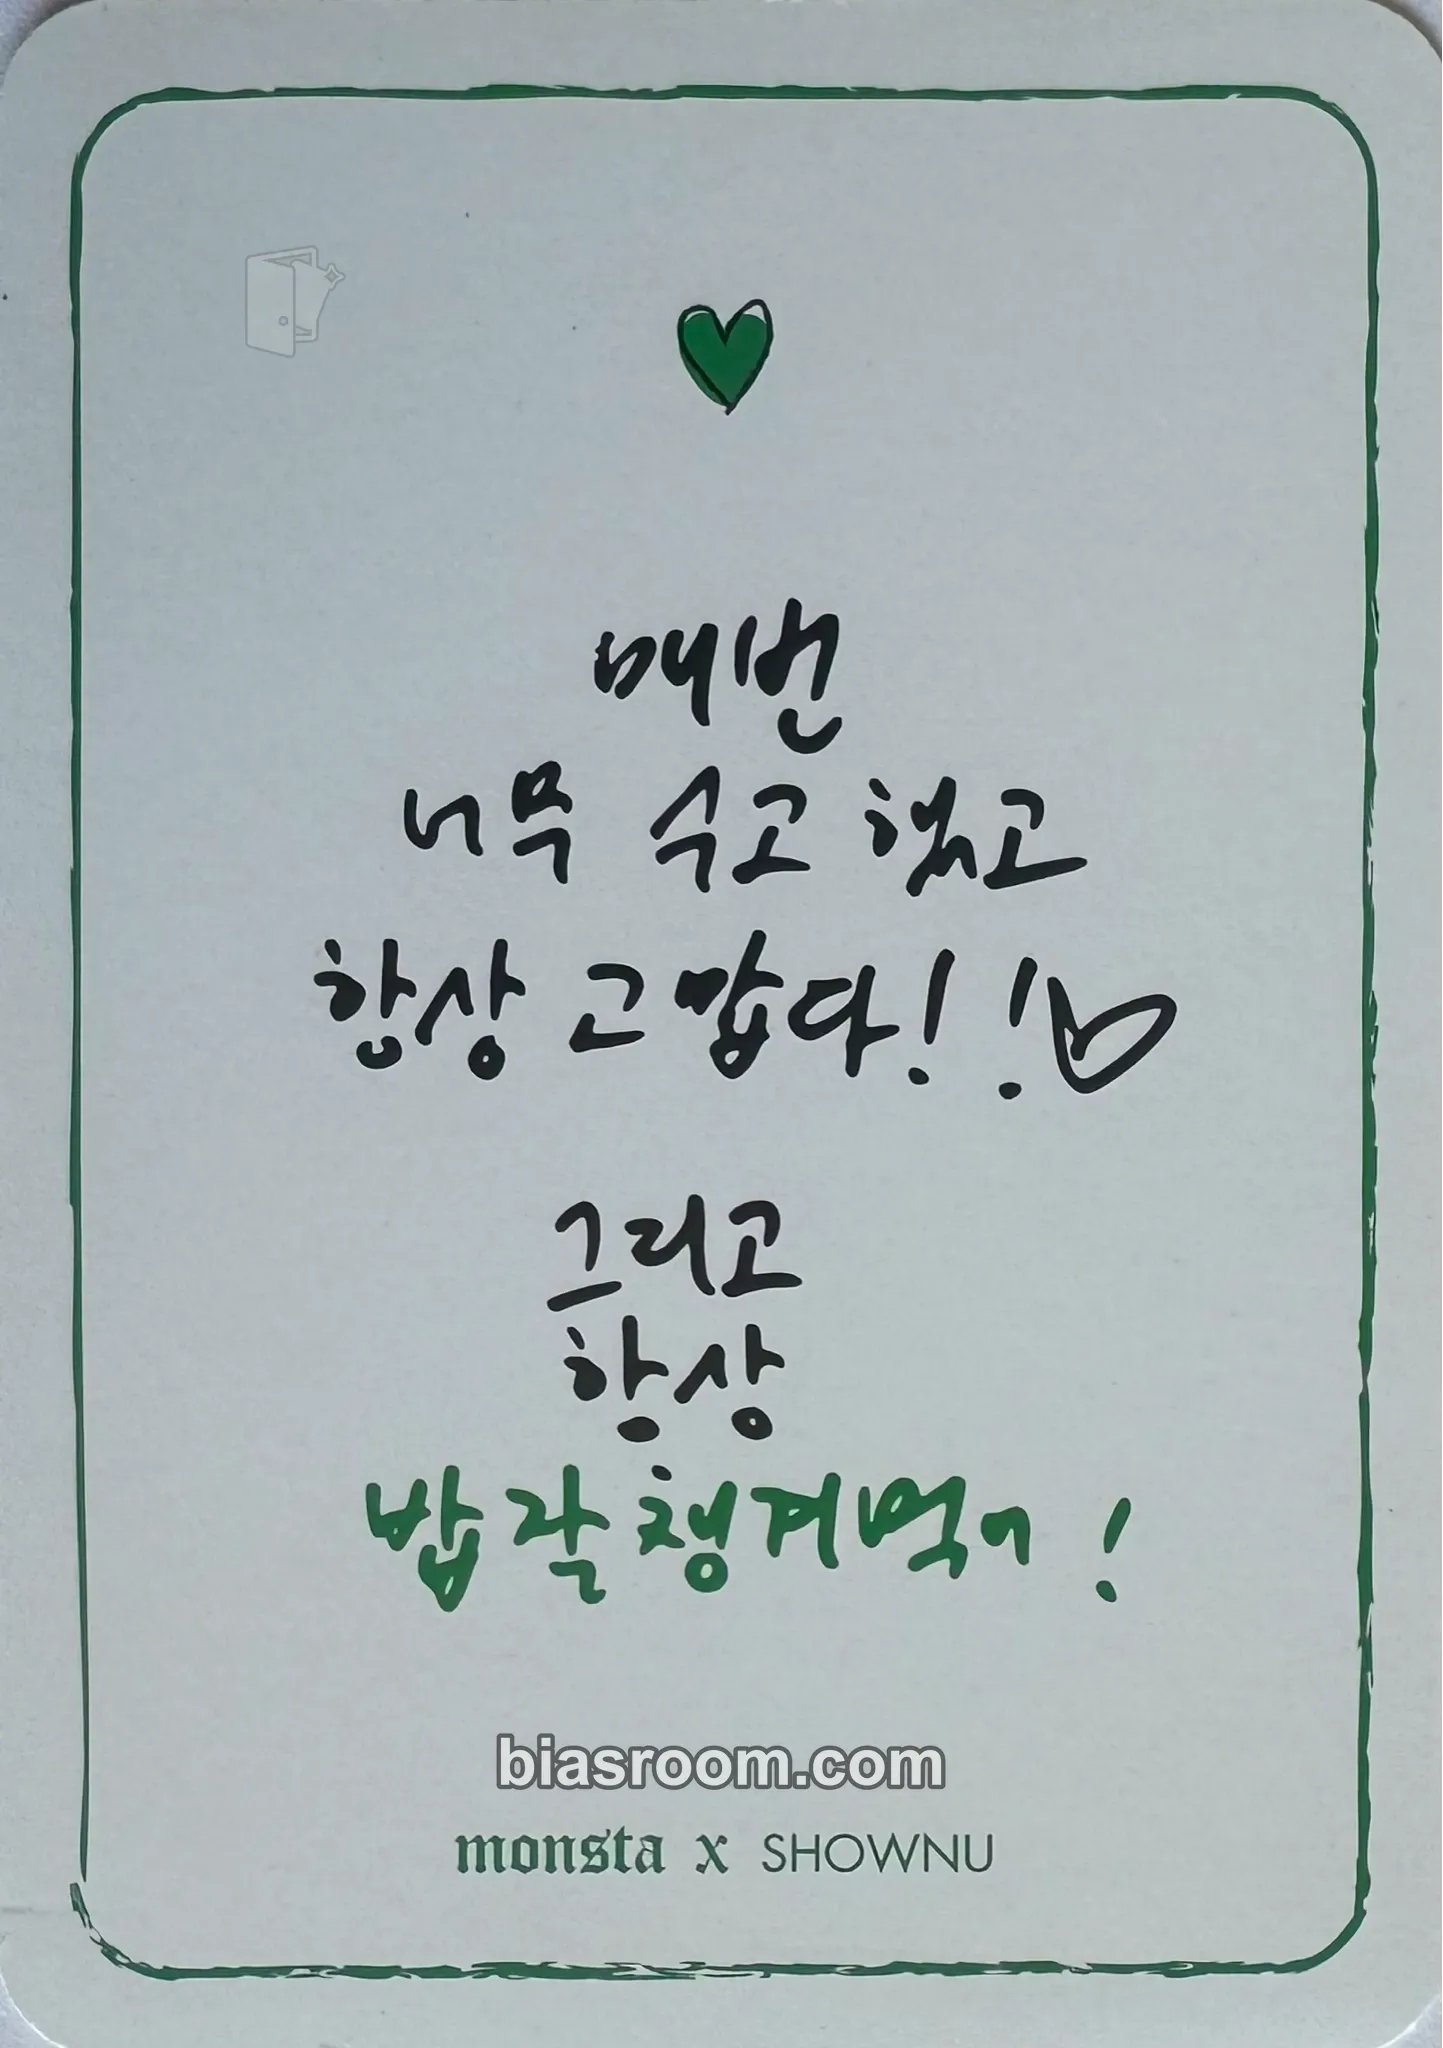 매번
너무 수고 했고
항상 고맙다!!
그리고
항상
밥 잘 챙겨먹어!
biasroom.com
monsta x SHOWNU